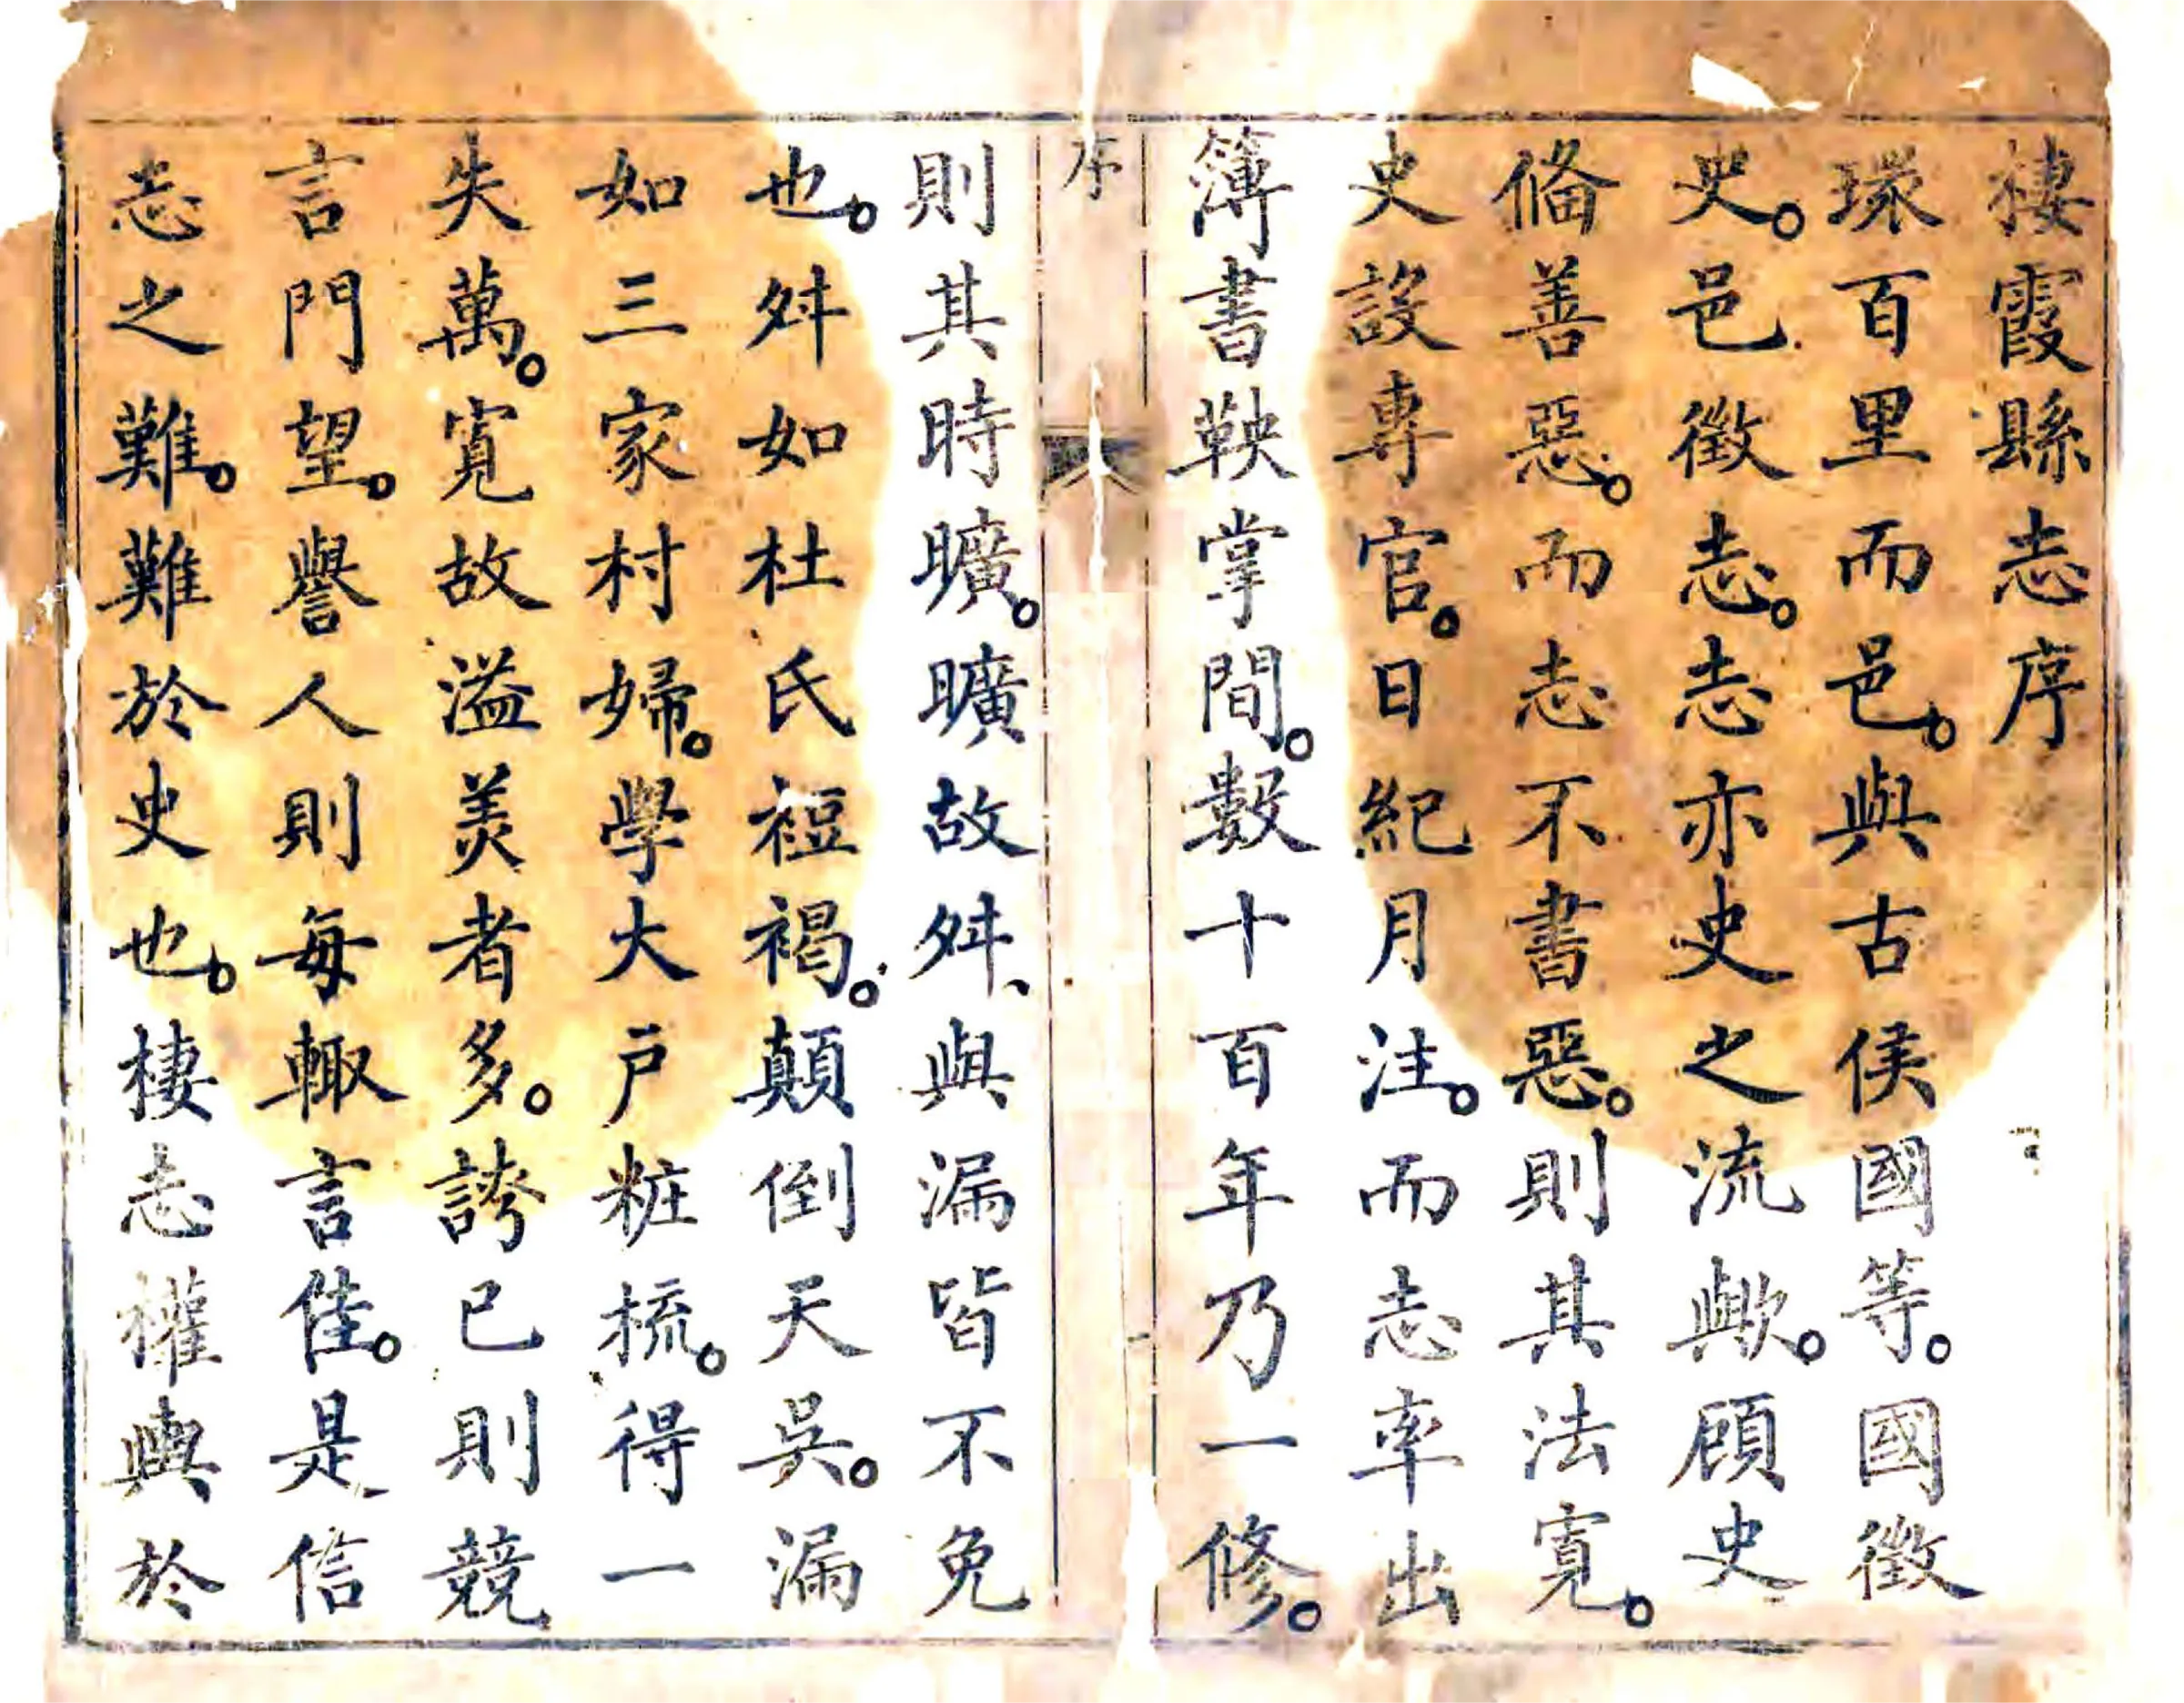 棲霞縣志序
環百里而邑。與古侯國等。國徵
史。邑徵志。志亦史之流歟。顧史
俻善惡。而志不書惡。則其法寬。
史設專官。日紀月注。而志率出
簿書鞅掌間。數十百年乃一修。
序
則其時曠。曠故舛、與漏皆不免
也。舛如杜氏裋褐。顛倒天吳。漏
如三家村婦。學大戶粧梳。得一
失萬。寬故溢美者多。誇已則競
言門望。譽人則每輙言佳。是信
志之難。難於史也。棲志權輿於